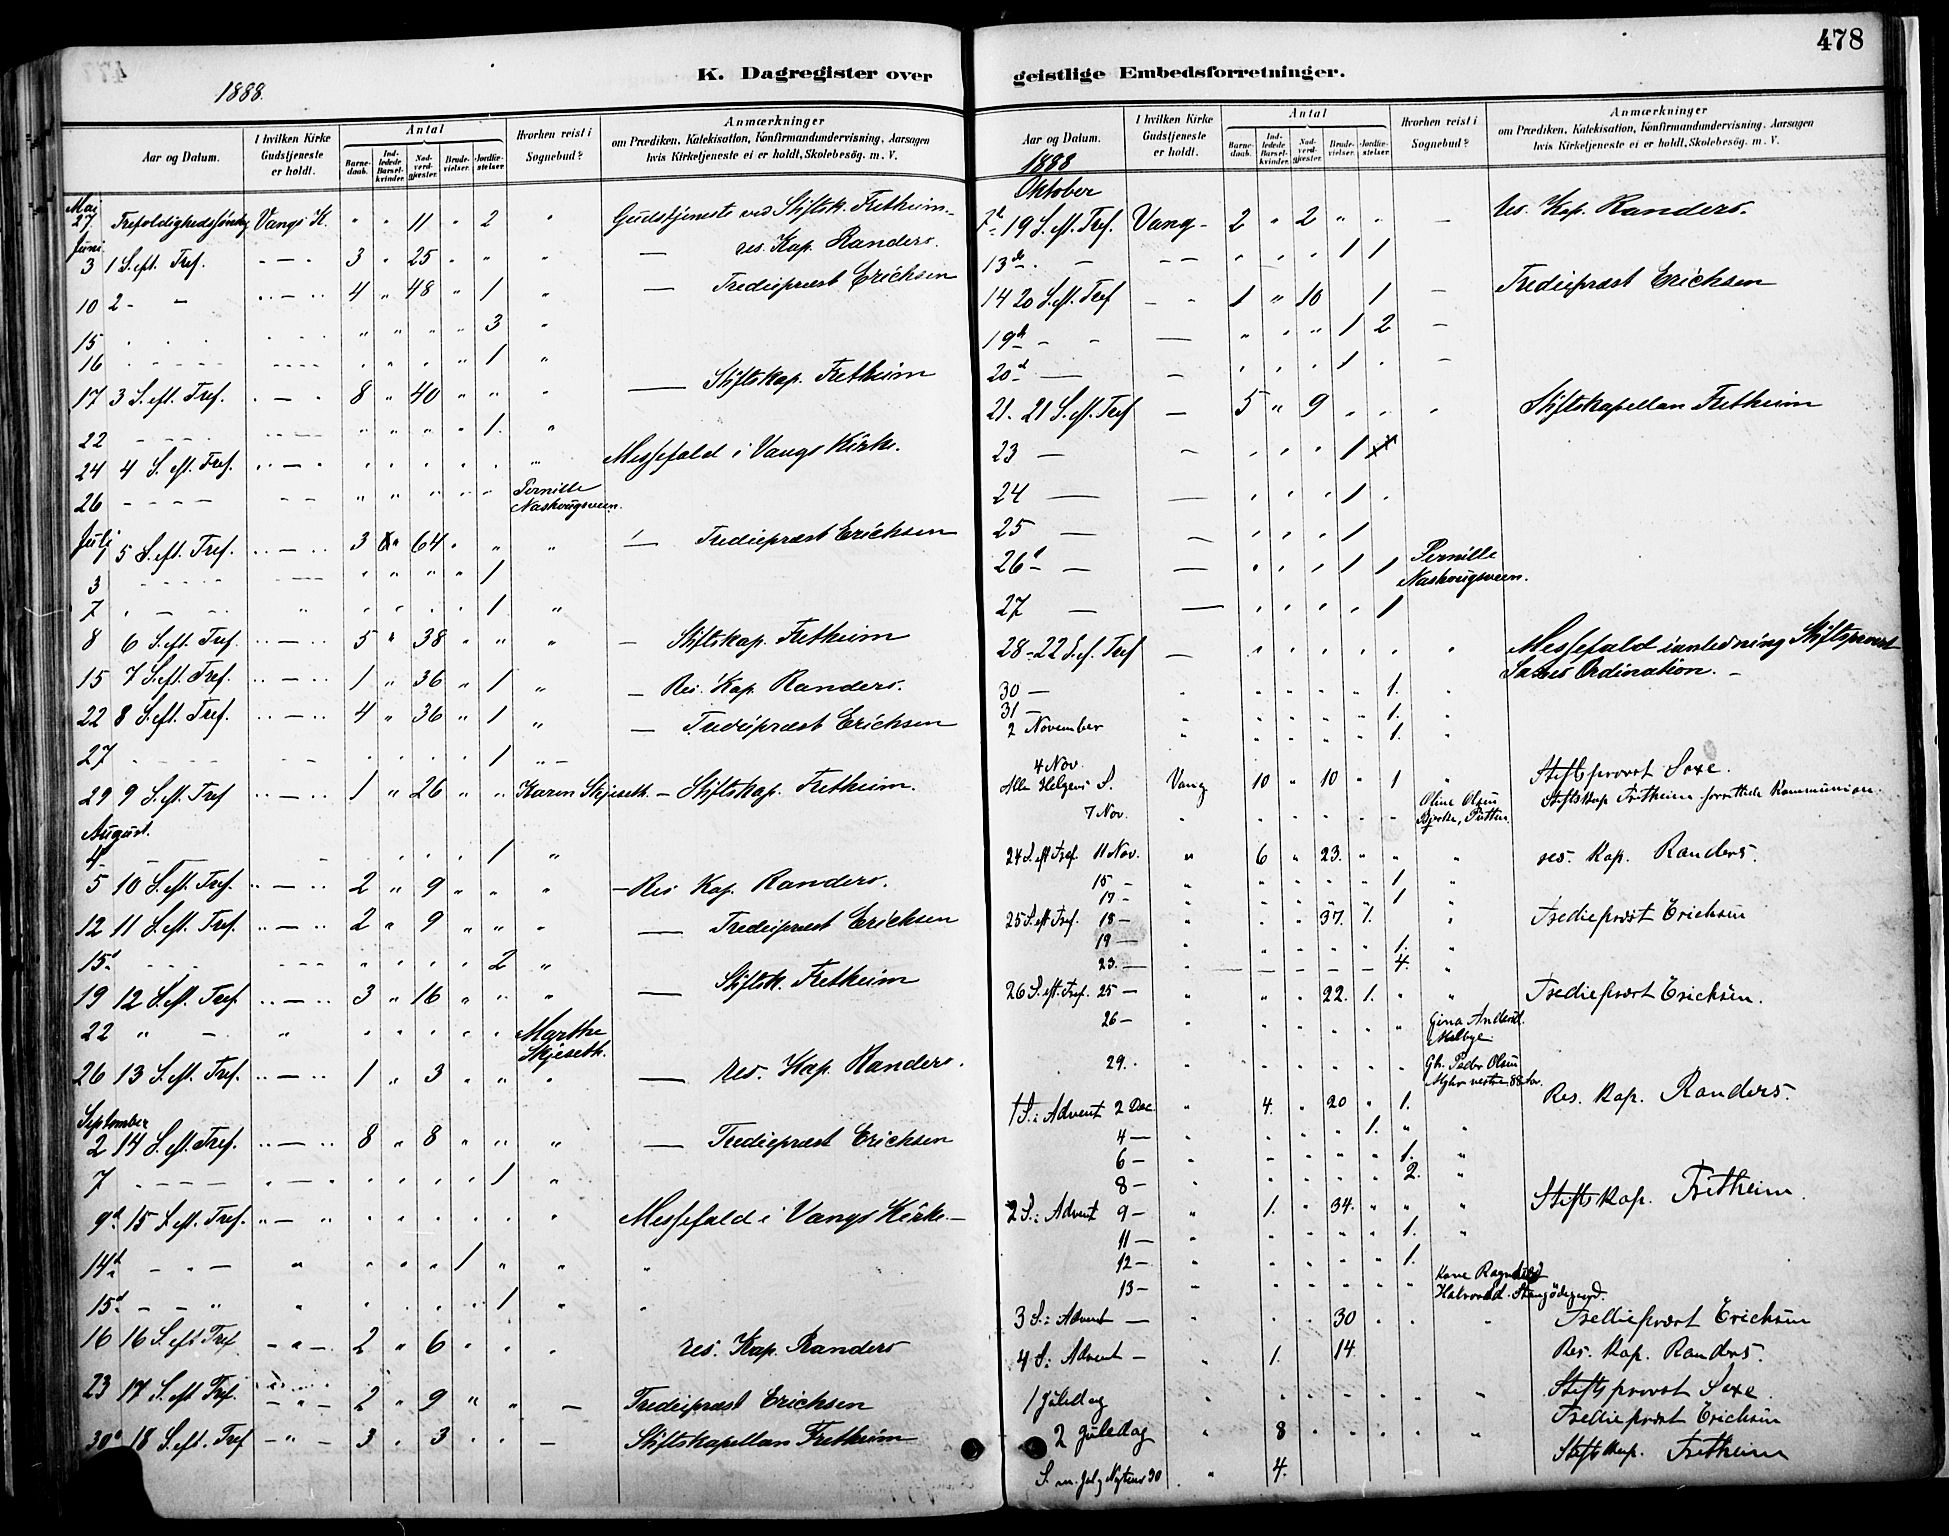 478
K. Dagregister over geistlige Embedsforretninger.
1888.
Aar og Datum.
I hvilken Kirke Gudstjeneste er holdt.
Antal
Barnedaab.
Indledede Barselkvinder.
Nadverdgjester.
Brudevielser.
Jordfæstelser.
Hvorhen reist i Sognebud?
Anmærkninger
om Prædiken, Katekisation, Konfirmandundervisning, Aarsagen
hvis Kirketjeneste ei er holdt, Skolebesøg. m. V.
Mai
27 Trefoldighedssöndag Vangs K. " " 11 " 2 " Gudstjeneste ved Stiftsk. Fretheim
Juni
3 1 S. eft. Tref. " — " 3 " 25 " " " — res. Kap. Randers.
10 2 - - " — " 4 " 48 " 1 " — Trediepræst Erichsen
15 " " " " 3 "
16 " " " " 1 "
17 3 S. eft. Tref. " — " 8 " 40 " " " — Stiftskap. Fretheim
22 " " " " 1. "
24 4 S. eft. Tref. " — " " " " " " " Messefald i Vangs Kirke.
26 - - - - " " " " " Pernille Naskougsveen.
Juli
1 5 S. eft. Tref. " — " 3 " 64 " " " — Trediepræst Erichsen
3 " " " " 1
7 " " " " 1 "
8 6 S. eft. Tref. " — " 5 " 38 " " " — Stiftskap. Fretheim
15 7 S. eft. Tref. " — " 1 " 36 " 1 " — Res. Kap. Randers.
22 8 S. eft. Tref. " — " 4 " 36 " 1 " — Trediepræst Erichsen
27 " " " " 1 " —
29 9 S. eft. Tref " — " 1 " 26 " " Karen Skjeseth. — Stiftskap. Fretheim.
August.
4 " " " " 1 "
5 10 S. eft. Tref. " — " 2 " 9 " " " — Res Kap. Randers.
12 11 S. eft. Tref. " — " 2 " 9 " " " — Trediepræst Erichsen
15. " " " " 2 "
19 12 S. eft. Tref. " — " 3 " 16 " " " — Stiftsk. Fretheim
22 " - " " " " " " Marthe Skjeseth.
26 13 S. eft. Tref. " — " 1 " 3 " " " — res. Kap. Randers.
September
2 14 S. eft. Tref. " — " 8 " 8 " " " — Trediepræst Erichsen
7 - - - - " " " " 1 "
9d. 15 S. eft. Tref. " — " " " " " " " Messefald i Vangs Kirke. —
14d. - - - " " " " 1 " " "
15d. - - " " " " " " 1 " "
16 16 S. eft Tref - " - 2 " 6 " " " res. Kap. Randers
23 17 S. eft Tref. - " - 2 " 9 " " — Trediepræst Erichsen
30d 18 S. eft. Tref - " - 3 " 3 " " — Stiftskapellan Fretheim
Aar og Datum.
I hvilken Kirke Gudstjeneste er holdt.
Antal
Barnedaab.
Indledede Barselkvinder.
Nadverdgjester.
Brudevielser.
Jordfæstelser.
Hvorhen reist i Sognebud?
Anmærkninger
om Prædiken, Katekisation, Konfirmandundervisning, Aarsagen
hvis Kirketjeneste ei er holdt, Skolebesög. m. V.
1888
Oktober
7d. 19 S. eft. Tref. Vang - 2 " 2 " " — res. Kap. Randers.
13d. — - - " " " 1 1
14 20 S. eft. Tref - " 1 " 10 1 — Trediepræst Erichsen
19d - - — " " " 1 2 —
20d. — — " " " 1 " —
21. 21 S. eft. Tref — 5 " 9 " " " Stiftskapellan Fretheim
23 — — " " " 1
24 — — " " " 1 "
25 — — " " " 1
26d — — " " " 1 1 Pernille Naskougsveen.
27 — — " " " " 1
28 - 22 S. ef. Tref — " " " " " " Messefald i anledning Stiftsprovst
Saxes Ordination. —
30 — " " " " " 1. "
31 — " " " " " 1. "
2 November " " " " " 1. "
4 Nov.
Alle Helgens S. Vang 10 " 10 " 1 " Stiftsprovst Saxe.
Stiftskap Fretheim forrettede Kommunion.
7 Nov. " " " " " " Oline Olsen Bjerke,
24 S. eft Tref. 11 Nov. " 6 " 23. " " " res. Kap. Randers.
15 - " " " " " 1 "
17 - " " " " " 1
25 S. eft Tref. 18 - " " " 37. 1. " Trediepræst Erichsen
19 - " " " " " 1. "
23. — " — — — — 4. "
26 S. eft. Tref. 25 - " " " 22. 1. " " Trediepræst Erichsen.
26 - " " " " " " Gina Andersd.
29. " " " " " " Gb. Peder Olsen
1 S: Advent 2 Dec. " 4. " 20 " 1. Res. Kap. Randers.
4 — " " " " 1. " "
6 — " " " " " 1. "
8 — " " " " " 2. "
2 S: Advent 9 — " 1. " 34. " " " Stiftskap. Fretheim.
11 — " " " " " 1. "
12 — " " " " " 1.
13 — " " " " " " Kone Ragnhild
Halvorsd.
3 S: Advent — " " " 30 " " " Trediepræst Erichsen
4 S: Advent — " 1. " 14. Res. Kap. Randers.
1 Juledag " " " " " " Stiftsprovst Saxe.
Trediepræst Erichsen
2 Juledag " 8 " " " " " Stiftskap. Fretheim
S. m. Jul og Nytaar 30 " 4.